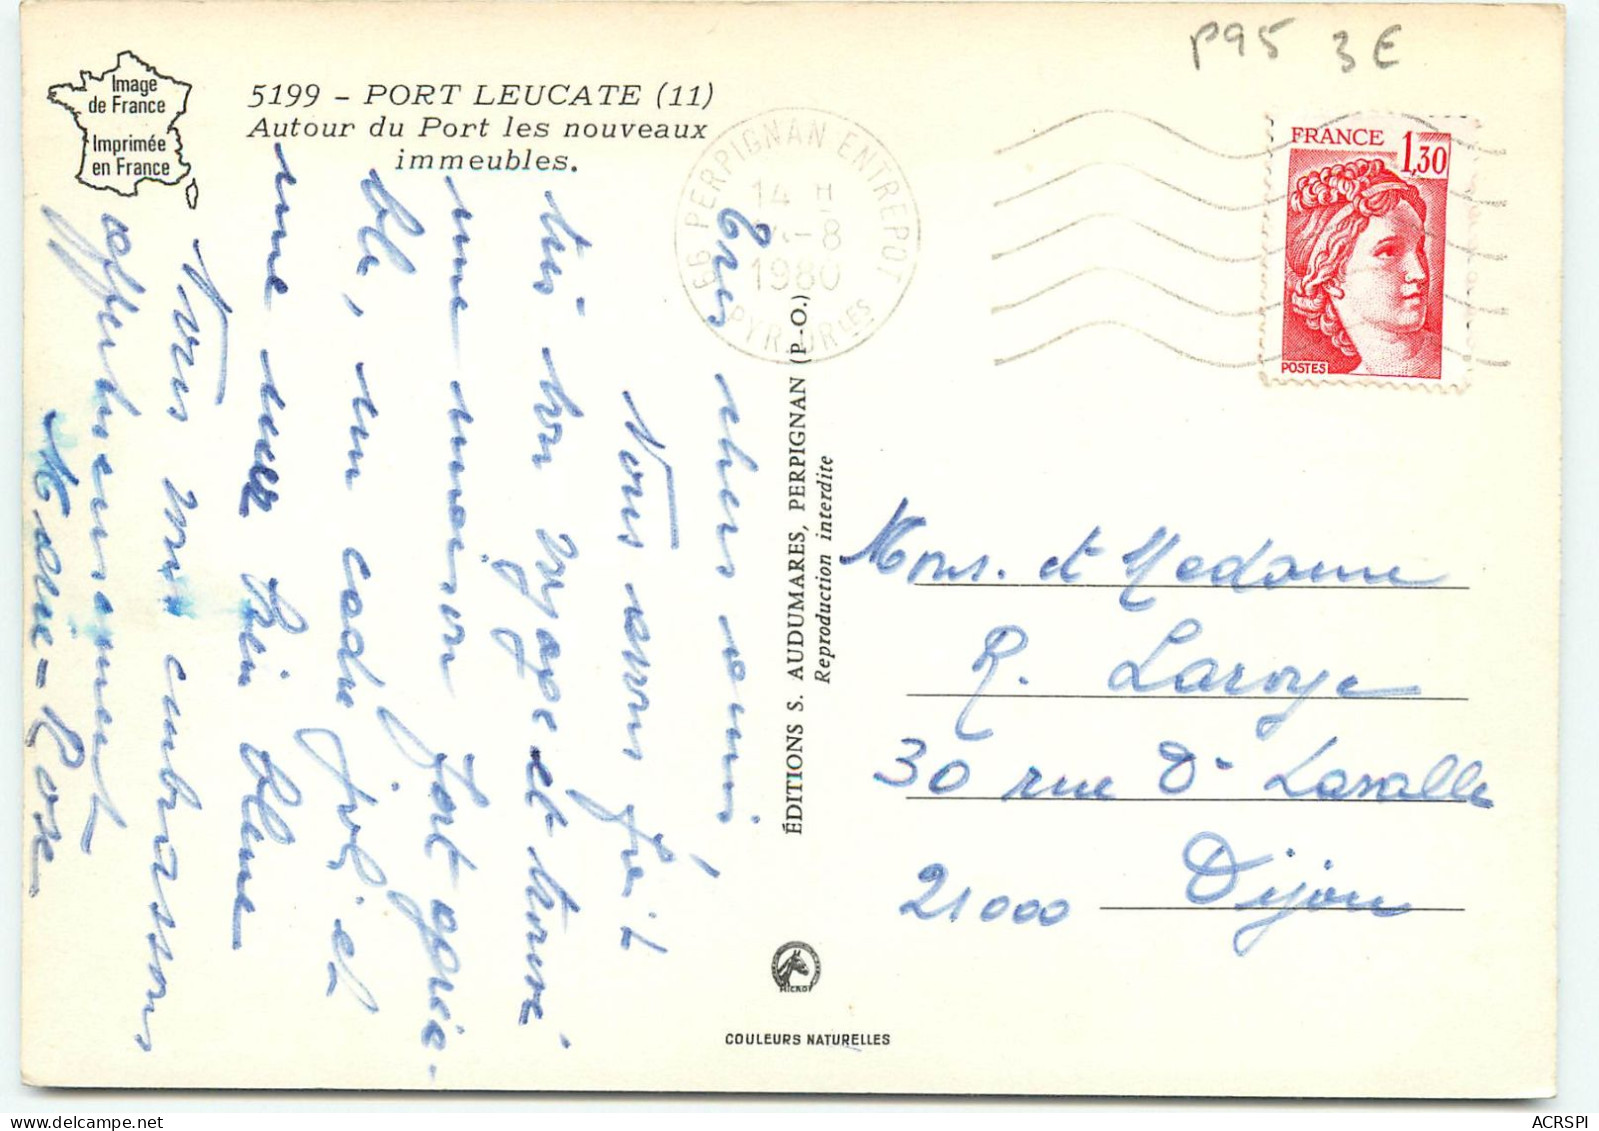 P95 3E
Image
de France
Imprimée
en France
5199 - PORT LEUCATE (11)
Autour du Port les nouveaux
immeubles.
66 PERPIGNAN ENTREPOT
14 H
-8
1980
PYR. OR LES
FRANCE 1,30
POSTES
Très chers amis,
Nous avons fait
un bon voyage et trouvé
une maison fort agréa-
ble, un cadre joli et
une mer bien bleue
Nous vous embrassons
affectueusement
Marie-Rose
ÉDITIONS S. AUDUMARES, PERPIGNAN (P.-O.)
Reproduction interdite
Mons. et Madame
R. Laroye
30 rue Dr Lavalle
21000 Dijon
MICRO
COULEURS NATURELLES
ACRSPI